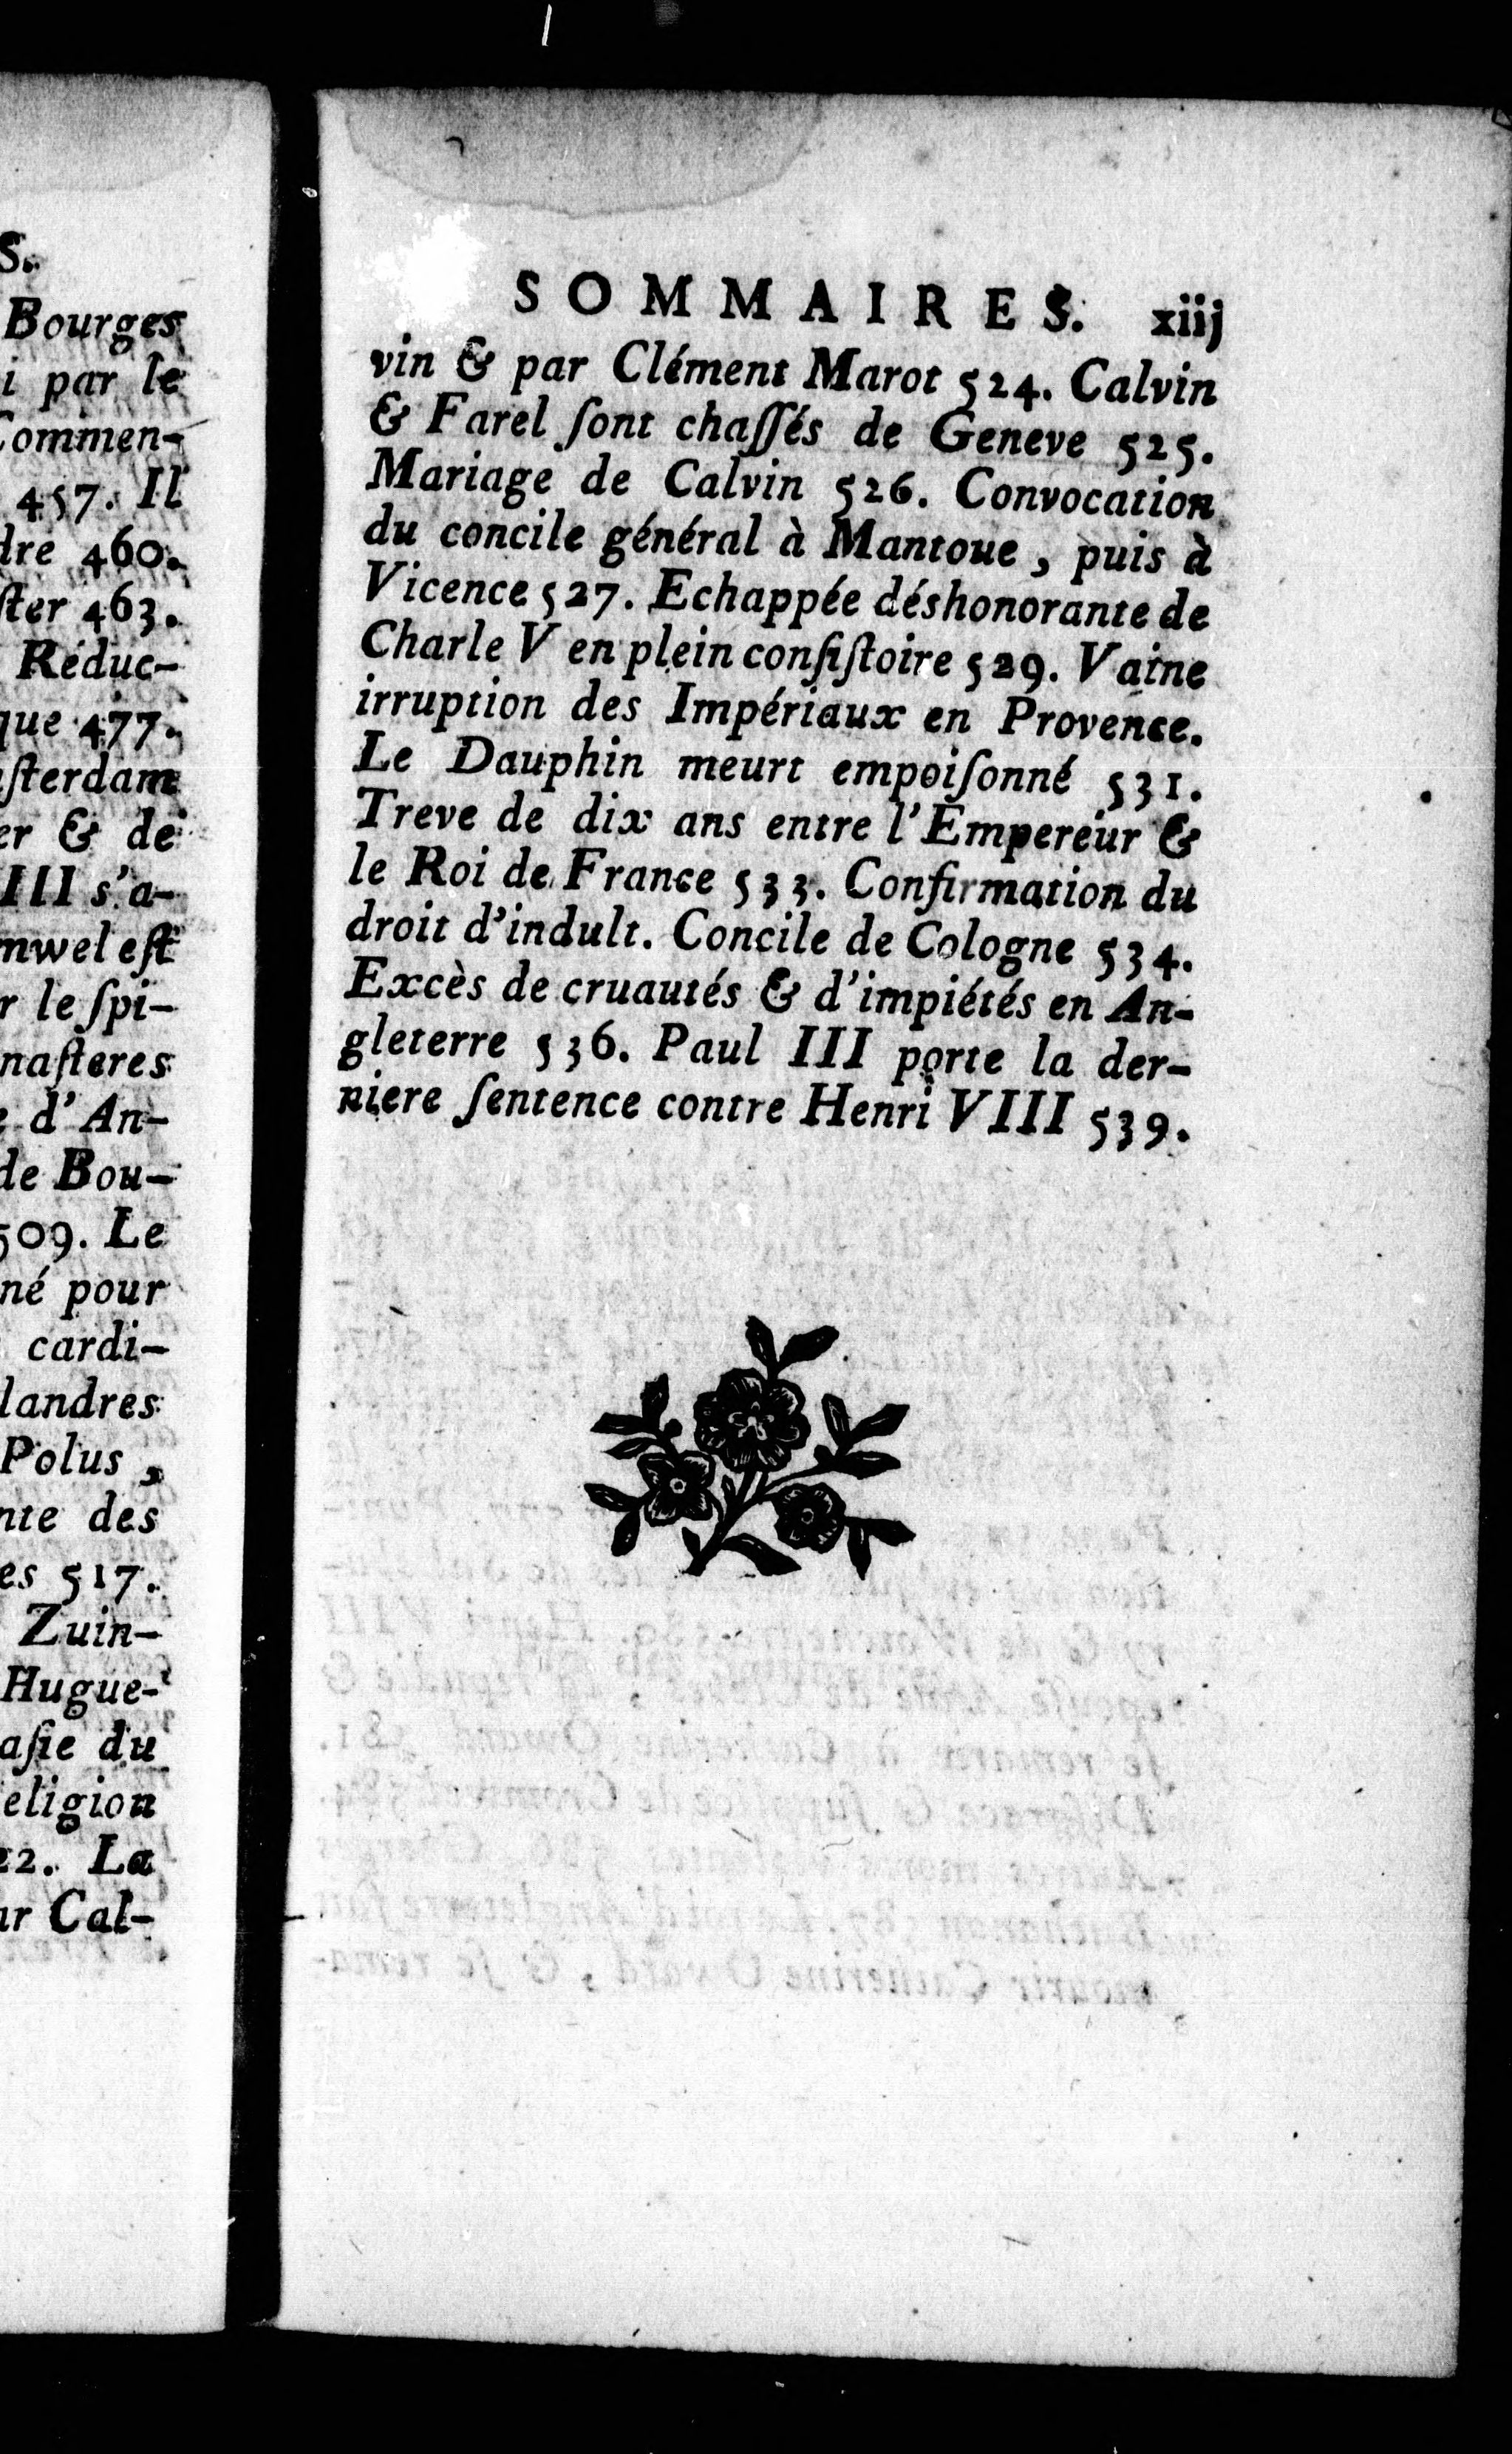 S.
Bourges
i par le
Commen-
457. Il
dre 460.
ſter 463.
Réduc-
que 477.
ſterdam
er & de
III s'a-
mwel eſt
r le ſpi-
naſteres
e d'An-
de Bou-
509. Le
né pour
cardi-
landres
Polus,
nte des
es 517.
Zuin-
Hugue-
aſie du
eligion
22. La
ar Cal-
SOMMAIRES. xiij
vin & par Clément Marot 524. Calvin
& Farel ſont chaſſés de Geneve 525.
Mariage de Calvin 526. Convocation
du concile général à Mantoue, puis à
Vicence 527. Echappée déshonorante de
Charle V en plein conſiſtoire 529. Vaine
irruption des Impériaux en Provence.
Le Dauphin meurt empoiſonné 531.
Treve de dix ans entre l'Empereur &
le Roi de France 533. Confirmation du
droit d'indult. Concile de Cologne 534.
Excès de cruautés & d'impiétés en An-
gleterre 536. Paul III porte la der-
niere ſentence contre Henri VIII 539.